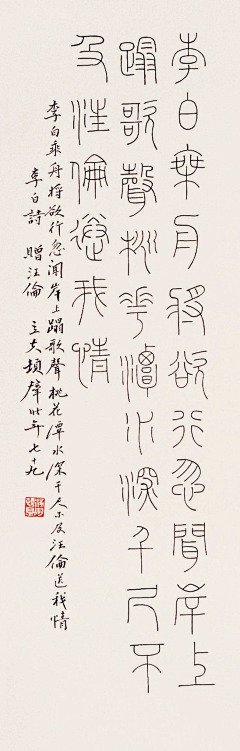 李白乘舟将欲行忽闻岸上
蹋歌聲桃花潭水深千尺不
及汪倫送我情
李白乘舟将欲行忽闻岸上蹋歌聲桃花潭水深千尺不及汪倫送我情
李白詩 贈汪倫